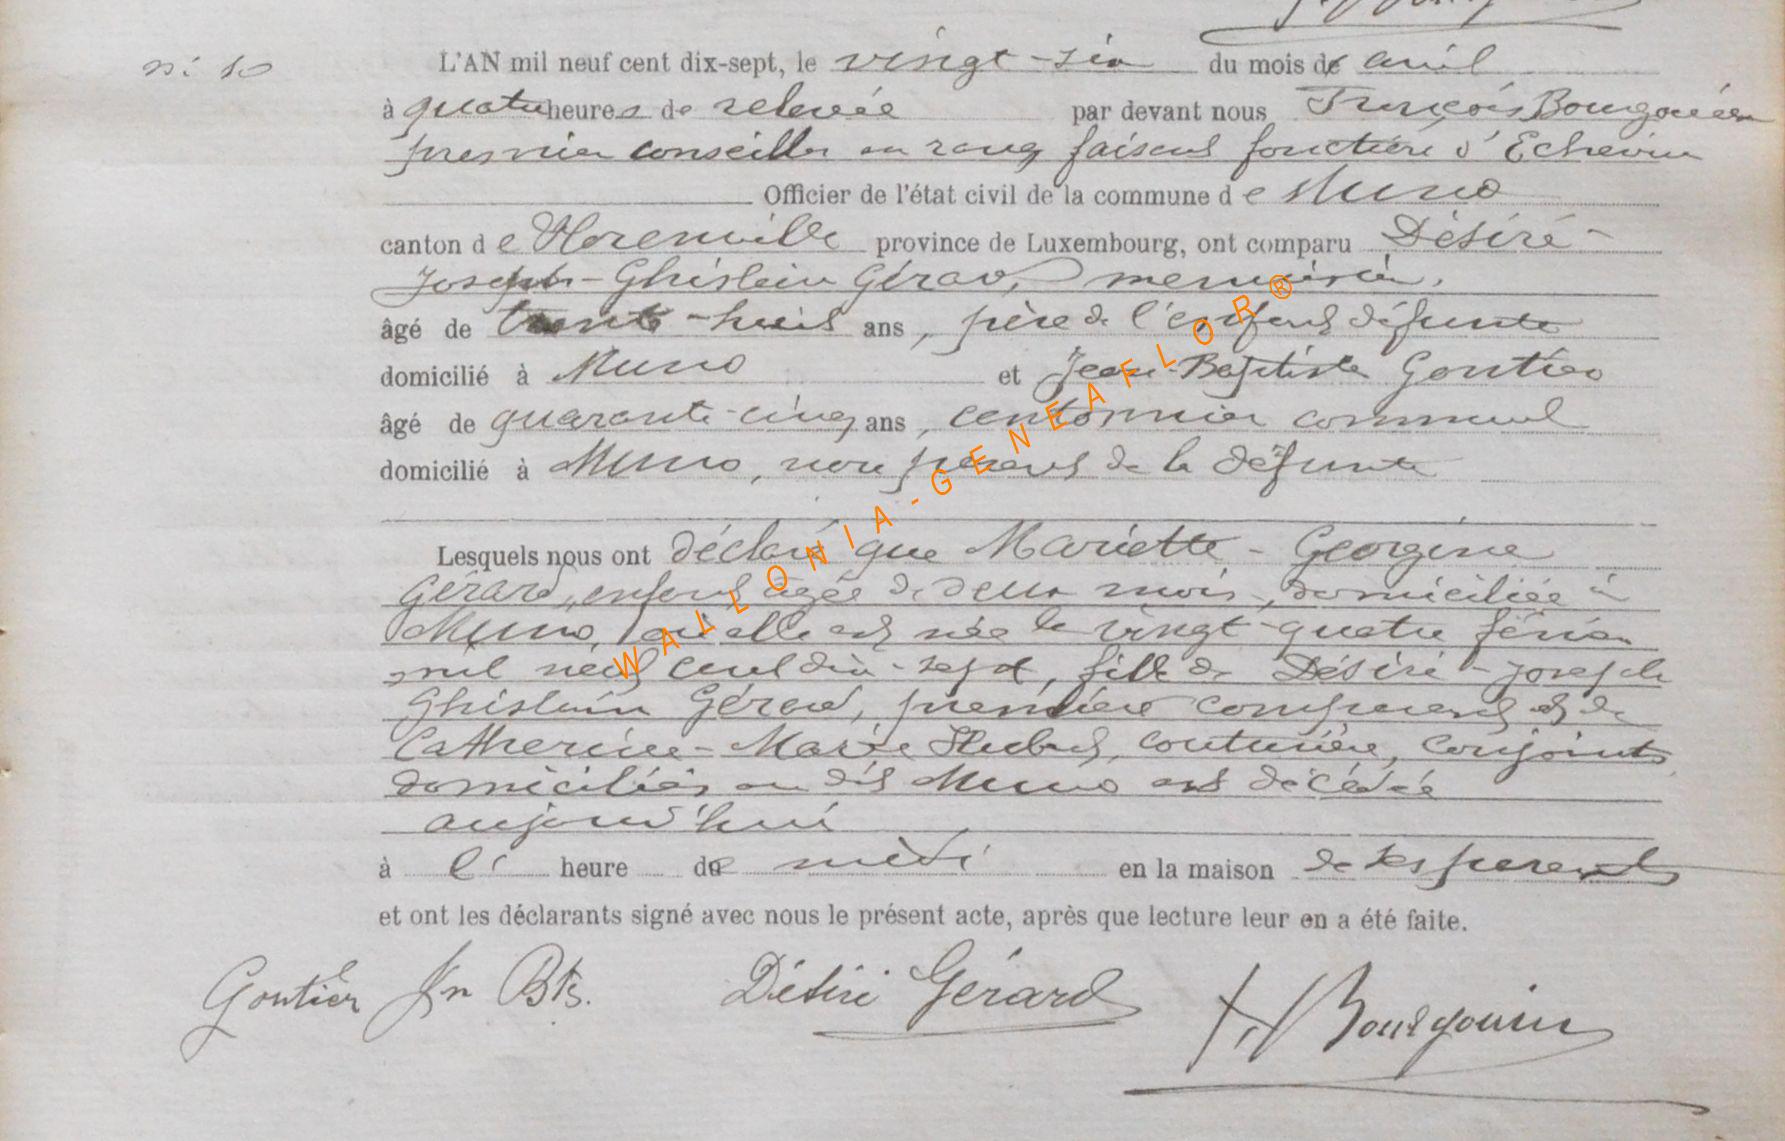 n° 10
L'AN mil neuf cent dix-sept, le vingt-six du mois d'avril
à quatre heures de relevée par devant nous François Bourgouin
premier conseiller en rang faisant fonctions d'Echevin
Officier de l'état civil de la commune de Muno
canton de Florenville province de Luxembourg, ont comparu Désiré-
Joseph-Ghislain Gérard, menuisier,
âgé de trente-huit ans, père de l'enfant défunte
domicilié à Muno et Jean-Baptiste Gontier
âgé de quarante-cinq ans, cantonnier communal
domicilié à Muno, non parent de la défunte
Lesquels nous ont déclaré que Mariette-Georgine
Gérard, enfant âgée de deux mois, domiciliée à
Muno, où elle est née le vingt-quatre février
mil neuf cent dix-sept, fille de Désiré-Joseph
Ghislain Gérard, premier comparant et de
Catherine-Marie Hubert, couturière, conjoints
domiciliés au dit Muno est décédée
aujourd'hui
à l' heure de midi en la maison de ses parents
et ont les déclarants signé avec nous le présent acte, après que lecture leur en a été faite.
Gontier Jn Bte. Désiré Gérard F. Bourgouin
WALLONIA-GENEAFLOR®